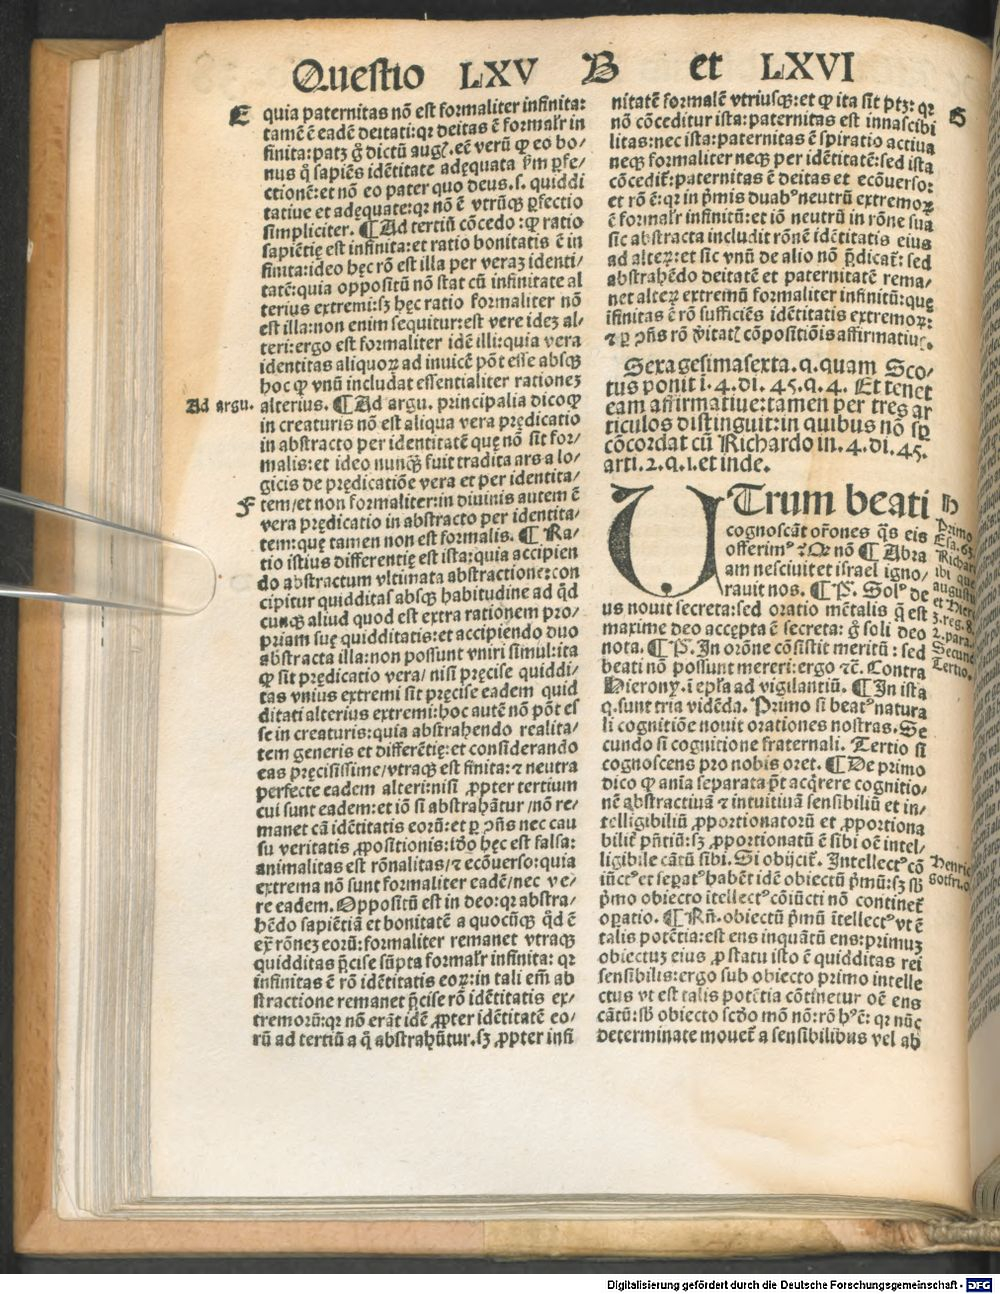 Questio LXV B et LXVI
E quia paternitas nō est formaliter infinita:
tamē ē eadē deitati: qꝛ deitas ē formalr̄ in
finita: patꝫ g̊ dictū augꝰ. eē verū ꝙ eo bo-
nus q̊ sapiēs idētitate adęquata ꝑfe-
ctionē: et nō eo pater quo deus. s. quiddi
tatiue et adęquate: qꝛ nō ē vtrūqꝫ ꝑfectio
simpliciter. ¶ Ad tertiū cōcedo: ꝙ ratio
sapiētię est infinita: et ratio bonitatis ē in
finita: ideo hęc rō est illa per veraꝫ identi/
tatē: quia oppositū nō stat cū infinitate al
terius extremi: sꝫ hęc ratio formaliter nō
est illa: non enim sequitur: est vere ideꝫ al/
teri: ergo est formaliter idē illi: quia vera
identitas aliquoꝝ ad inuicē pōt esse absqꝫ
hoc ꝙ vnū includat essentialiter rationeꝫ
Ad argu. alterius. ¶ Ad argu. principalia dico ꝙ
in creaturis nō est aliqua vera prędicatio
in abstracto per identitatē quę nō sit for/
malis: et ideo nunqꝫ fuit tradita ars a lo/
gicis de prędicatiōe vera et per identita/
F tem/ et non formaliter: in diuinis autem ē
vera prędicatio in abstracto per identita/
tem: quę tamen non est formalis. ¶ Ra/
tio istius differentię est ista: quia accipien
do abstractum vltimata abstractione: con
cipitur quidditas absqꝫ habitudine ad q̄d
cunqꝫ aliud quod est extra rationem pro/
priam suę quidditatis: et accipiendo duo
abstracta illa: non possunt vniri simul: ita
ꝙ sit prędicatio vera/ nisi pręcise quiddi/
tas vnius extremi sit pręcise eadem quid
ditati alterius extremi: hoc autē nō pōt es
se in creaturis: quia abstrahendo realita/
tem generis et differētię: et considerando
eas pręcisissime/ vtraqꝫ est finita: ⁊ neutra
perfecte eadem alteri: nisi ꝓpter tertium
cui sunt eadem: et iō si abstrahātur/ nō re/
manet cā idētitatis eorū: et ꝑ ꝯn̄s nec cau
su veritatis ꝓpositionis: iō hęc est falsa:
animalitas est rōnalitas/ ⁊ ecōuerso: quia
extrema nō sunt formaliter eadē/ nec ve/
re eadem. Oppositū est in deo: qꝛ abstra/
hēdo sapiētiā et bonitatē a quocūqꝫ q̄d ē
ex̄ rōneꝫ eorū: formaliter remanet vtraqꝫ
quidditas p̄cise sūpta formalr̄ infinita: qꝛ
infinitas ē rō idētitatis eoꝝ: in tali em̄ ab
stractione remanet p̄cise rō idētitatis ex/
tremorū: qꝛ nō erāt idē ꝓpter idētitatē eo/
rū ad tertiū a q̊ abstrahūtur. sꝫ ꝓpter infi
nitatē formalē vtriusqꝫ: et ꝙ ita sit ptꝫ: qꝛ G
nō cōceditur ista: paternitas est innascibi
litas: nec ista: paternitas ē spiratio actiua
neqꝫ formaliter neqꝫ per idētitatē: sed ista
cōcedit̄: paternitas ē deitas et ecōuerso:
et rō ē: qꝛ in p̄mis duabꝰ neutrū extremoꝝ
ē formalr̄ infinitū: et iō neutrū in rōne sua
sic abstracta includit rōnē idētitatis eius
ad alteꝝ: et sic vnū de alio nō p̄dicat̄: sed
abstrahēdo deitatē et paternitatē rema/
net alteꝝ extremū formaliter infinitū: quę
īfinitas ē rō sufficiēs idētitatis extremoꝝ:
⁊ ꝑ ꝯn̄s rō v̄itatꝭ cōpositiōis affirmatiuę.
Sexagesimasexta. q. quam Sco/
tus ponit i. 4. di. 45. q. 4. Et tenet
eam affirmatiue: tamen per tres ar
ticulos distinguit: in quibus nō sꝑ
cōcordat cū Richardo in. 4. di. 45.
arti. 2. q. 1. et inde.
UTrum beati H
cognoscāt or̄ones q̄s eis
offerimꝰ? Qꝛ nō ¶ Abra
am nesciuit et israel igno/
rauit nos. ¶ P̄. Solꝰ de
us nouit secreta: sed oratio mētalis q̄ est
maxime deo accepta ē secreta: g̊ soli deo
nota. ¶ P̄. In orōne cōsistit meritū: sed
beati nō possunt mereri: ergo ⁊c̄. Contra
Hierony. ī ep̄la ad vigilantiū. ¶ In ista
q. sunt tria vidēda. Primo si beatꝰ natura
li cognitiōe nouit orationes nostras. Se
cundo si cognitione fraternali. Tertio si
cognoscens pro nobis oret. ¶ De primo
dico ꝙ aīa separata p̄t acq̄rere cognitio/
nē abstractiuā ⁊ intuitiuā sensibiliū et in/
telligibiliū ꝓportionatorū et ꝓportiona
bilit̄ pn̄tiū: sꝫ ꝓportionatū ē sibi oē intel/
ligibile cātū sibi. Si obijcit̄. Intellectꝰ cō
iūctꝰ et sepatꝰ habēt idē obiectū p̄mū: sꝫ sb̄
p̄mo obiecto ītellectꝰ cōiūcti nō continet̄
oꝑatio. ¶ Rn̄. obiectū p̄mū ītellectꝰ vt ē
talis potētia: est ens inquātū ens: primuꝫ
obiectuꝫ eius ꝓ statu isto ē quidditas rei
sensibilis: ergo sub obiecto primo intelle
ctus vt est talis potētia cōtinetur oē ens
cātū: sb̄ obiecto scd̄o mō nō: rō hꝰ ē: qꝛ nūc
determinate mouet̄ a sensibilibus vel ab
Primo
Esa. 63.
Richar.
ibi que
augusti
et Hier.
3. reg. 8.
2. para.
Secundo
Tertio.
Henric
Gotfri.
Digitalisierung gefördert durch die Deutsche Forschungsgemeinschaft - DFG